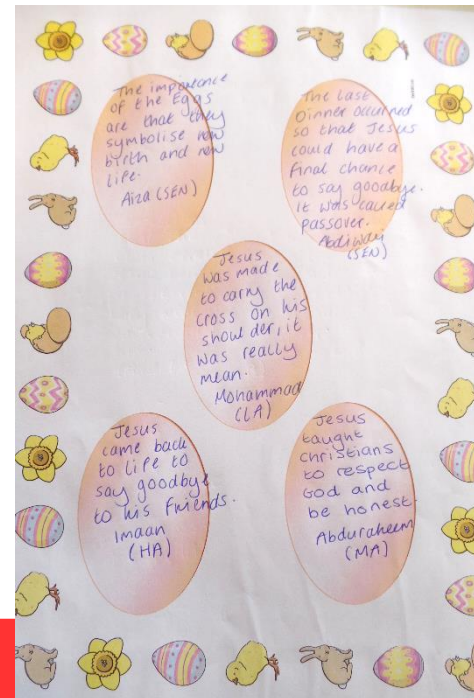 The importance
of the Eggs
are that they
symbolise new
birth and new
life.
Aiza (SEN)
The last
Dinner occurred
so that Jesus
could have a
final chance
to say goodbye.
It was called
passover.
Abdiwaly
(SEN)
Jesus
was made
to carry the
cross on his
shoulder, it
was really
mean.
Mohammad
(LA)
Jesus
came back
to life to
say goodbye
to his friends.
Imaan
(HA)
Jesus
taught
Christians
to respect
God and
be honest.
Abduraheem
(MA)